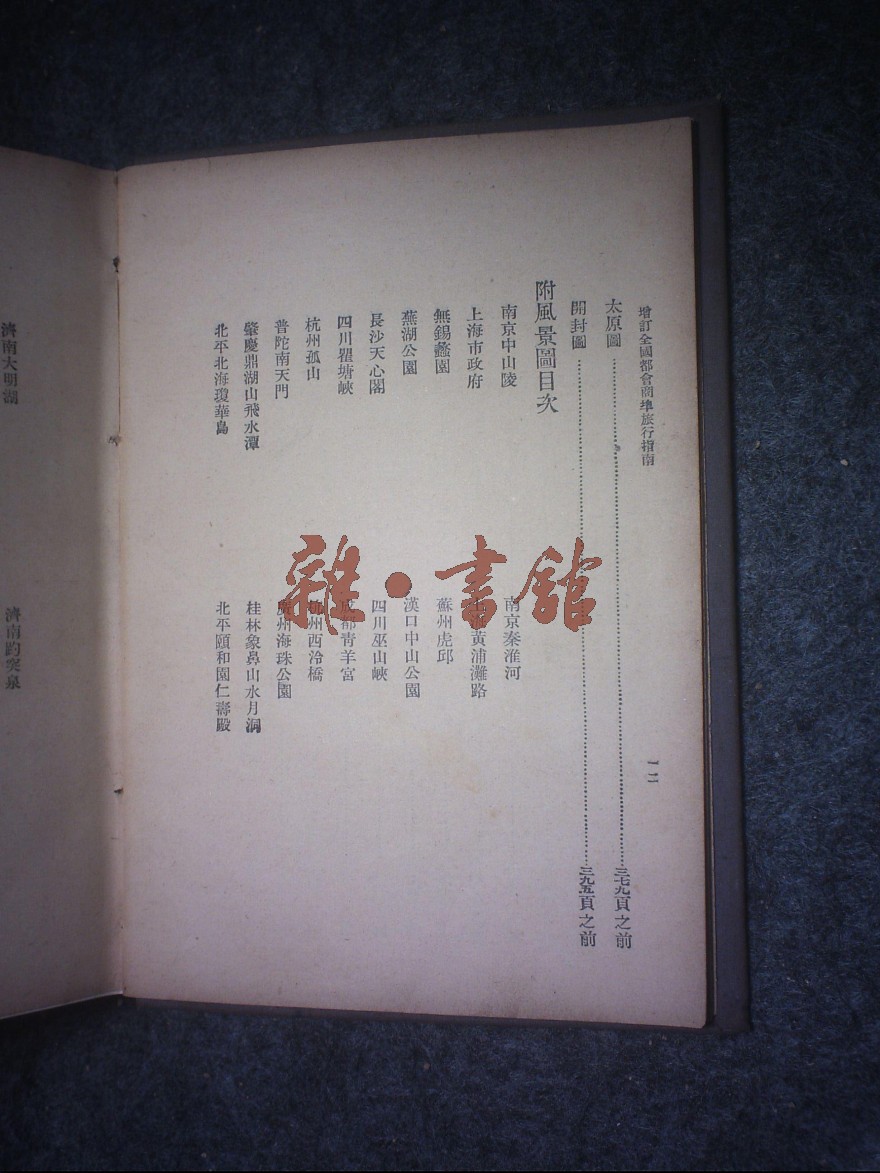 增訂全國都會商埠旅行指南
一二
太原圖……三七九頁之前
開封圖……三九五頁之前
附風景圖目次
南京中山陵
南京秦淮河
上海市政府
上海黃浦灘路
無錫蠡園
蘇州虎邱
蕪湖公園
漢口中山公園
長沙天心閣
四川巫山峽
四川瞿塘峽
成都青羊宮
杭州孤山
杭州西泠橋
普陀南天門
廣州海珠公園
肇慶鼎湖山飛水潭
桂林象鼻山水月洞
北平北海瓊華島
北平頤和園仁壽殿
濟南大明湖
濟南趵突泉
雜·書館